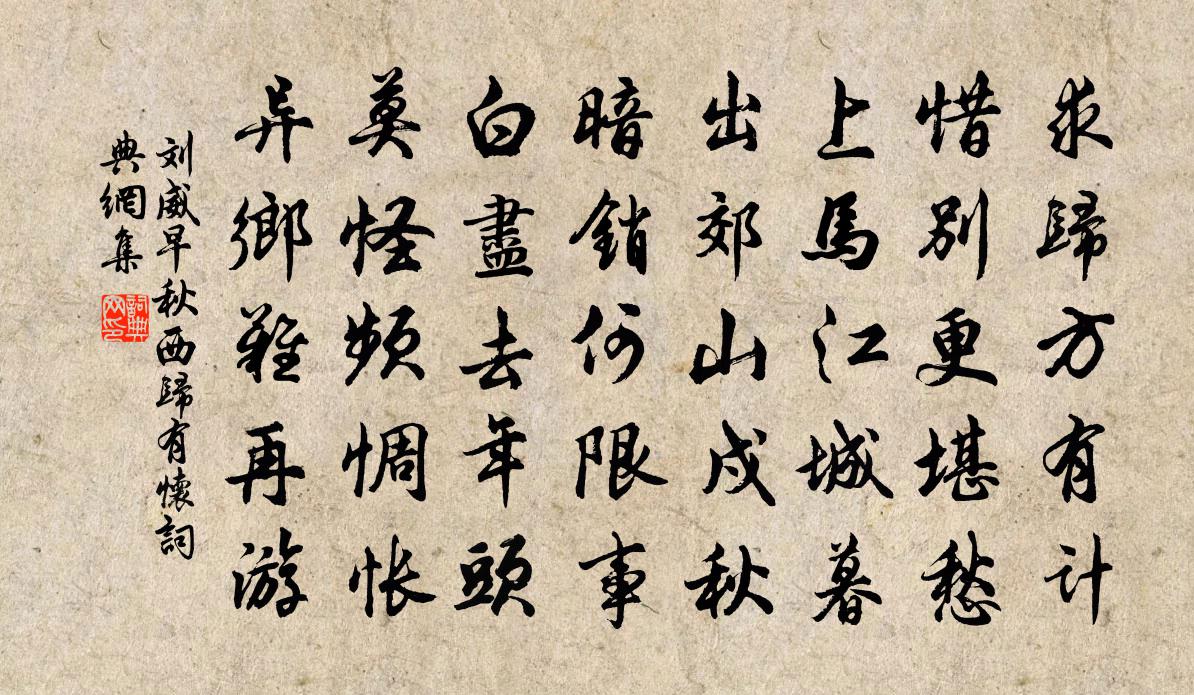 求歸方有计
惜别更堪愁
上馬江城暮
出郊山戍秋
暗銷何限事
白盡去年頭
莫怪頻惆怅
异鄉難再游
刘威早秋西歸有懷詞
典網集
詞典
网印